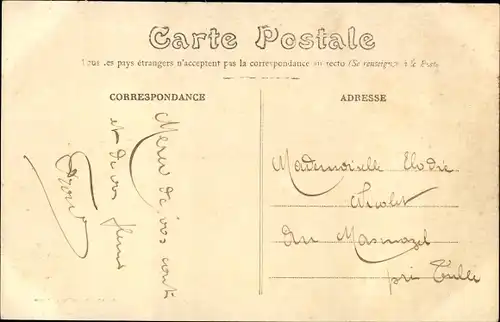 Carte Postale
Tous les pays étrangers n'acceptent pas la correspondance au recto (Se renseigner à la Poste)
CORRESPONDANCE
ADRESSE
Merci de vos
et de vos fleurs
Mademoiselle Elodie
Au Masmazel
près Tulle